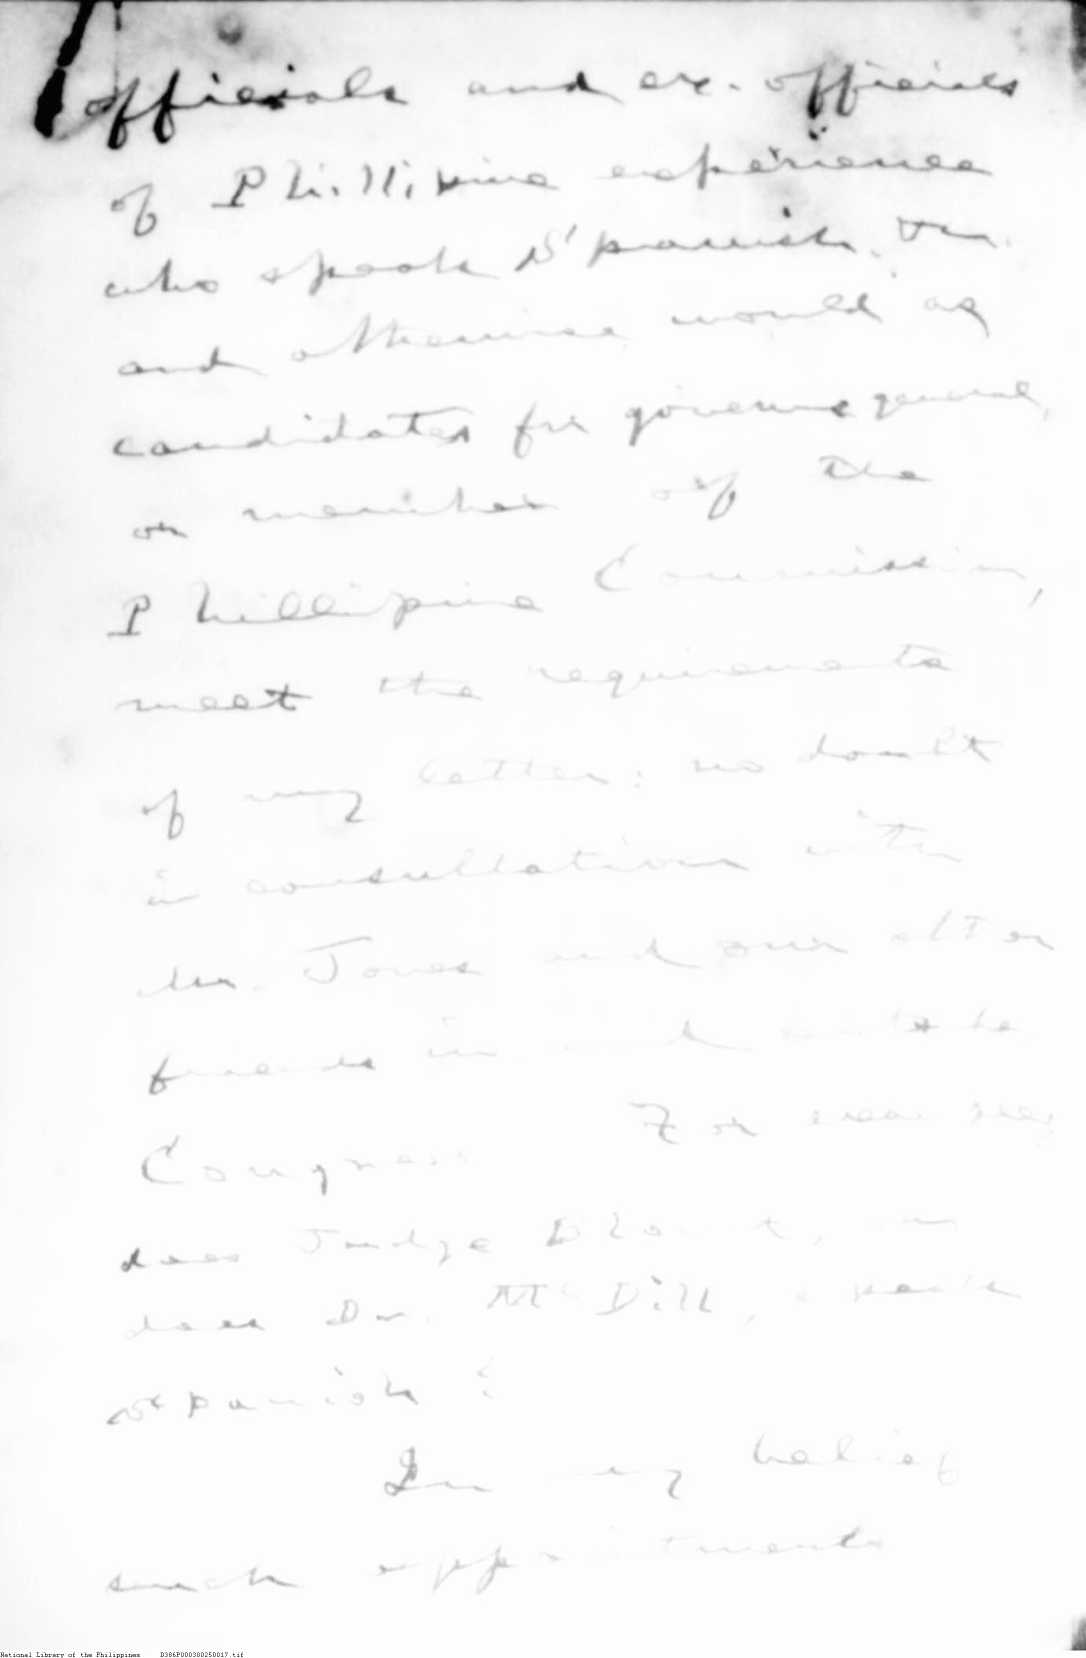 officials and ex-officials
of Phillipine experience
who speak Spanish
and otherwise would as
candidates for governor general,
or member of the
Phillipine Commission,
meet the requirements
of my letter; no doubt
in consultation with
Mr. Jones and our other
friends in and outside
Congress For
does Judge Blount, or
does Dr. McDill, speak
Spanish?
In my belief
such appointments
National Library of the Philippines D386P000300250017.tif